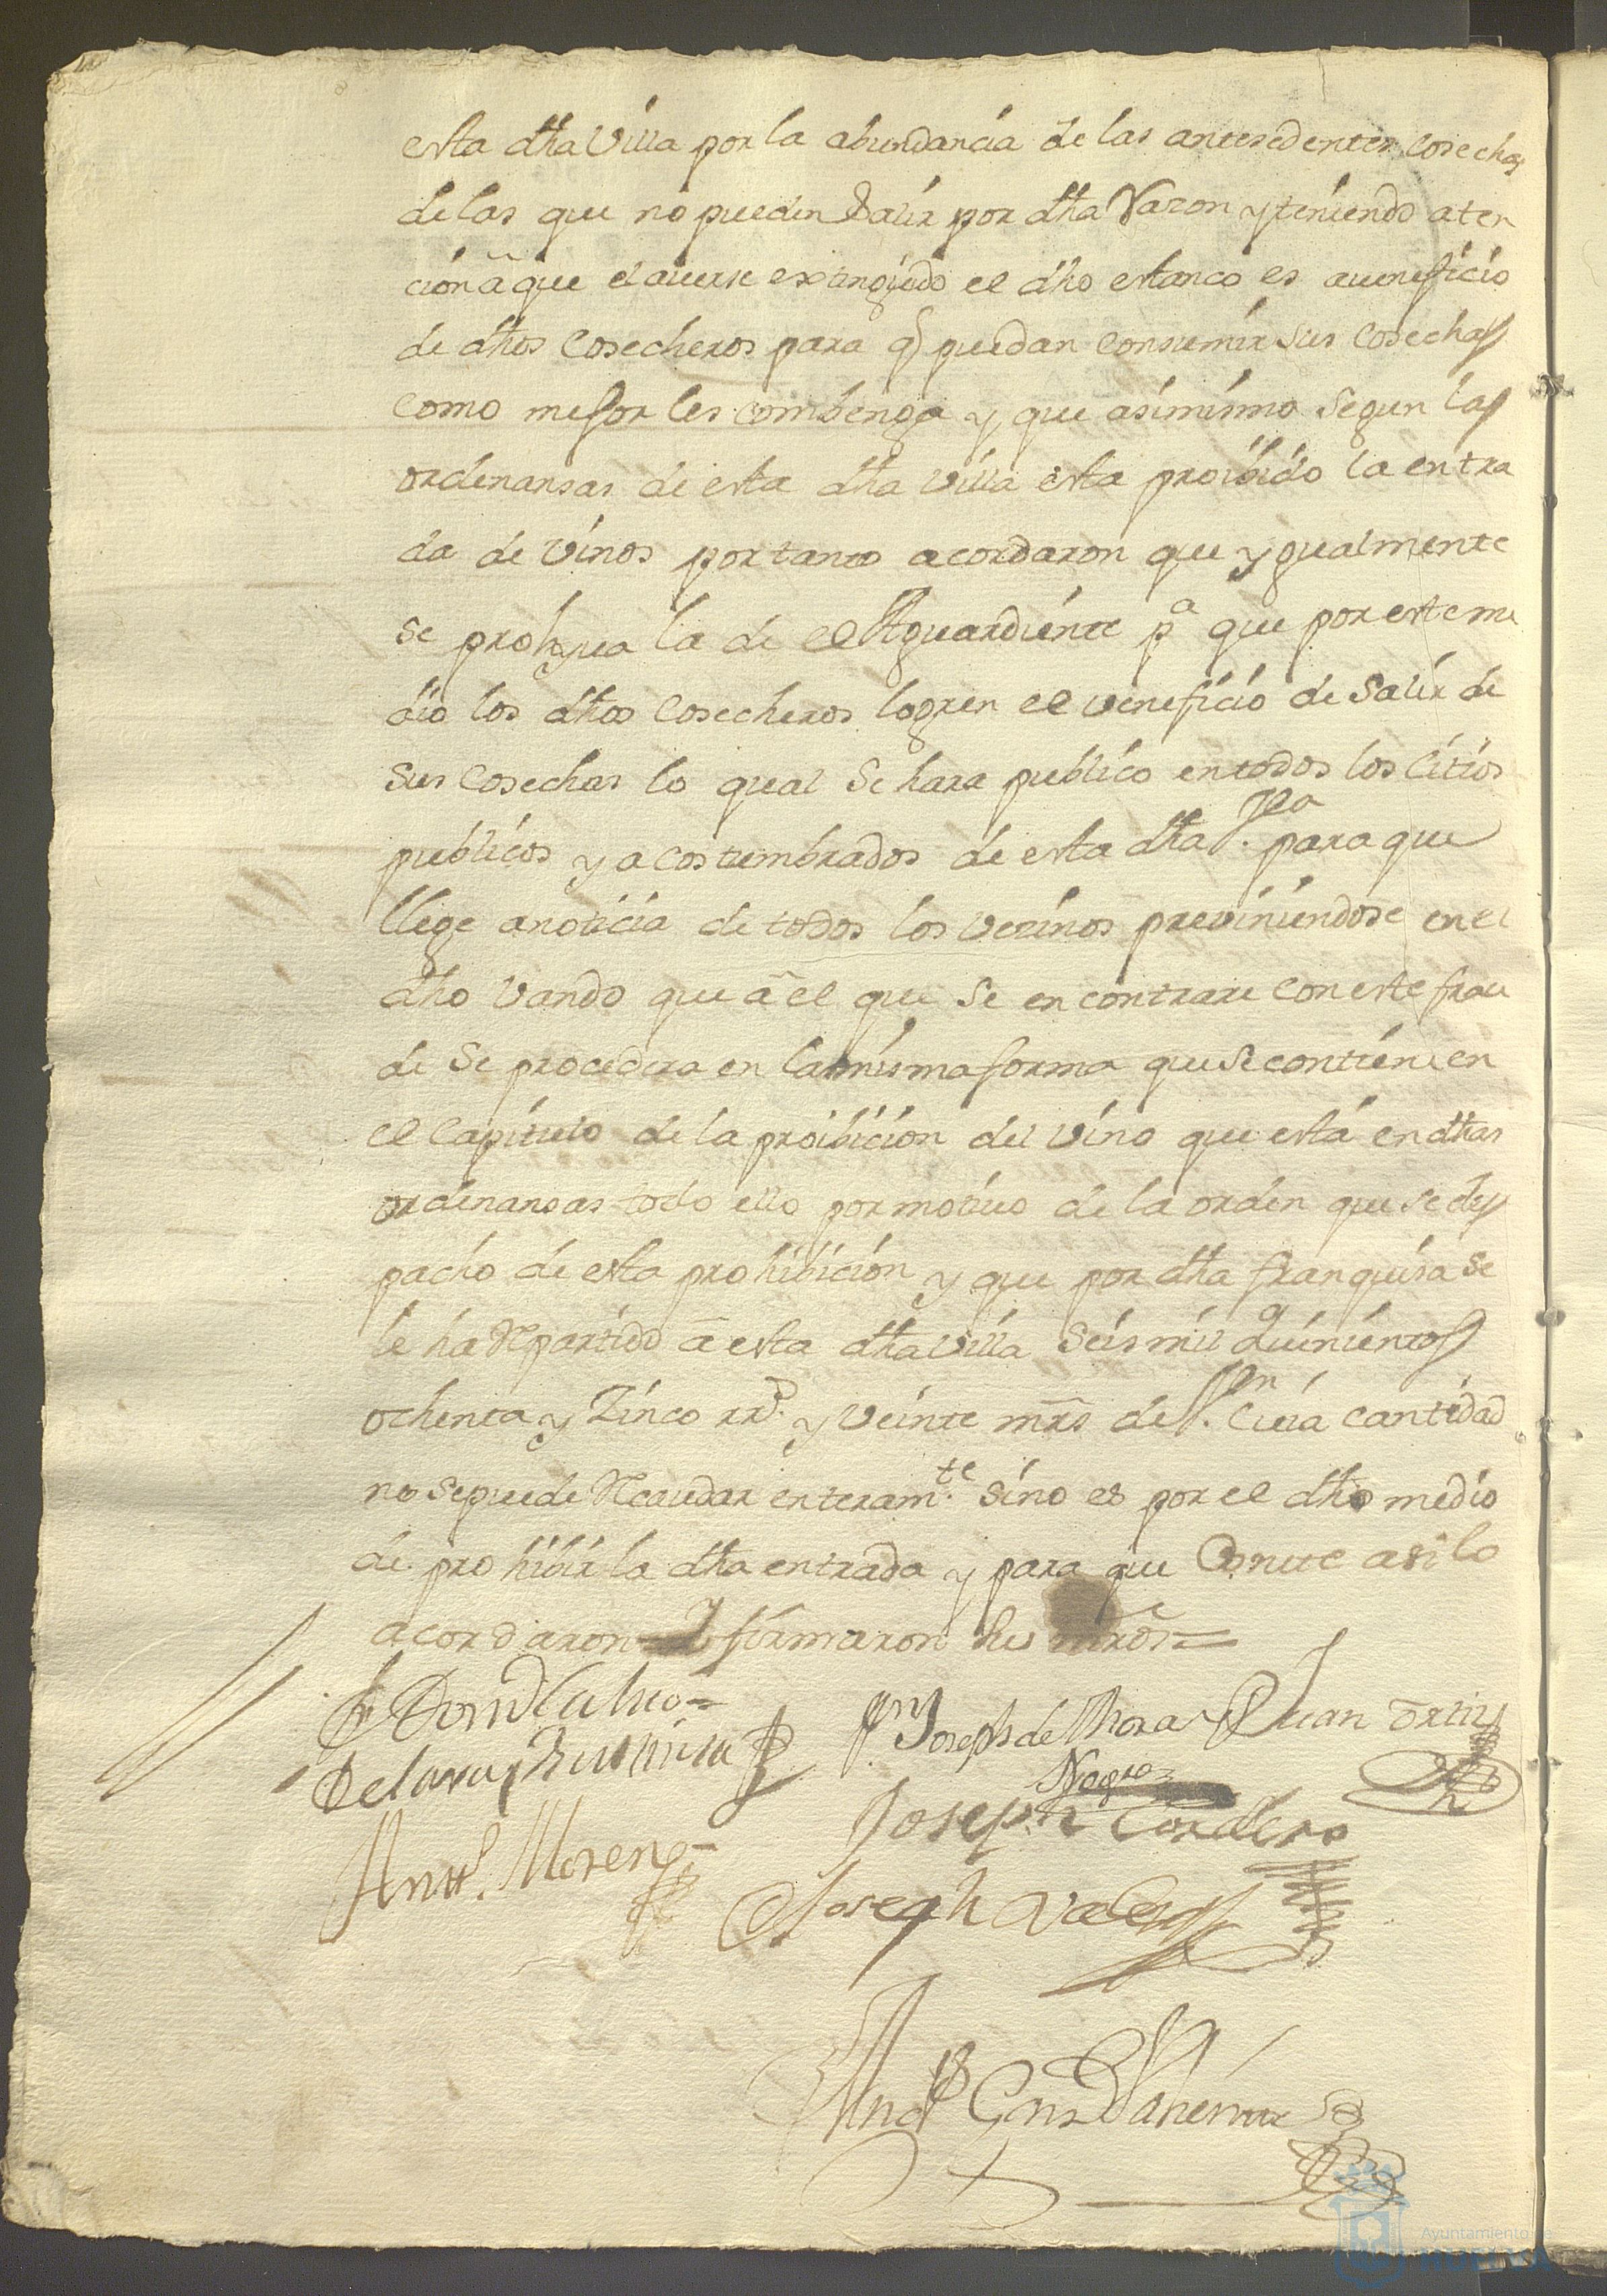 esta dha Villa por la abundancia de las antesedentes Cosechas
de las que no pueden Salir por dha Razon y teniendo aten
cion â que el averse extinguido el dho estanco es a veneficio
de dhos Cosecheros para q puedan Consumir sus Cosechas
Como mejor les combenga y que asimismo Segun las
ordenansas de esta dha Villa esta proibido la entra
da de Vinos por tanto acordaron que ygualmente
se prohyva la de el Aguardiente pa que por este me
dio los dhos Cosecheros logren el veneficio de Salir de
Sus Cosechas lo qual Se hara publico en todos los Citios
publicos y acostumbrados de esta dha Vlla para que
llege a noticia de todos los Vezinos previniendose en el
dho Vando que â el que Se encontrare Con este frau
de Se procedera en la misma forma que Se contiene en
el Capitulo de la proibicion del Vino que está en dhas
ordenansas todo ello por motivo de la orden que Se des
pacho de esta prohibicion y que por dha franquisa Se
le ha Repartido â esta dha Villa Seis mil Quinientos
ochenta y Zinco rrs. y Veinte mrs de Vn. Cuia Cantidad
no Se puede Recaudar enteramte. Sino es por el dho medio
de prohibir la dha entrada y para que Conste asi lo
acordaron = Y firmaron sus mrds =
Joseph de Mora Juan Ortiz
Negro
Joseph Cordero
Antt. Moreno
Joseph